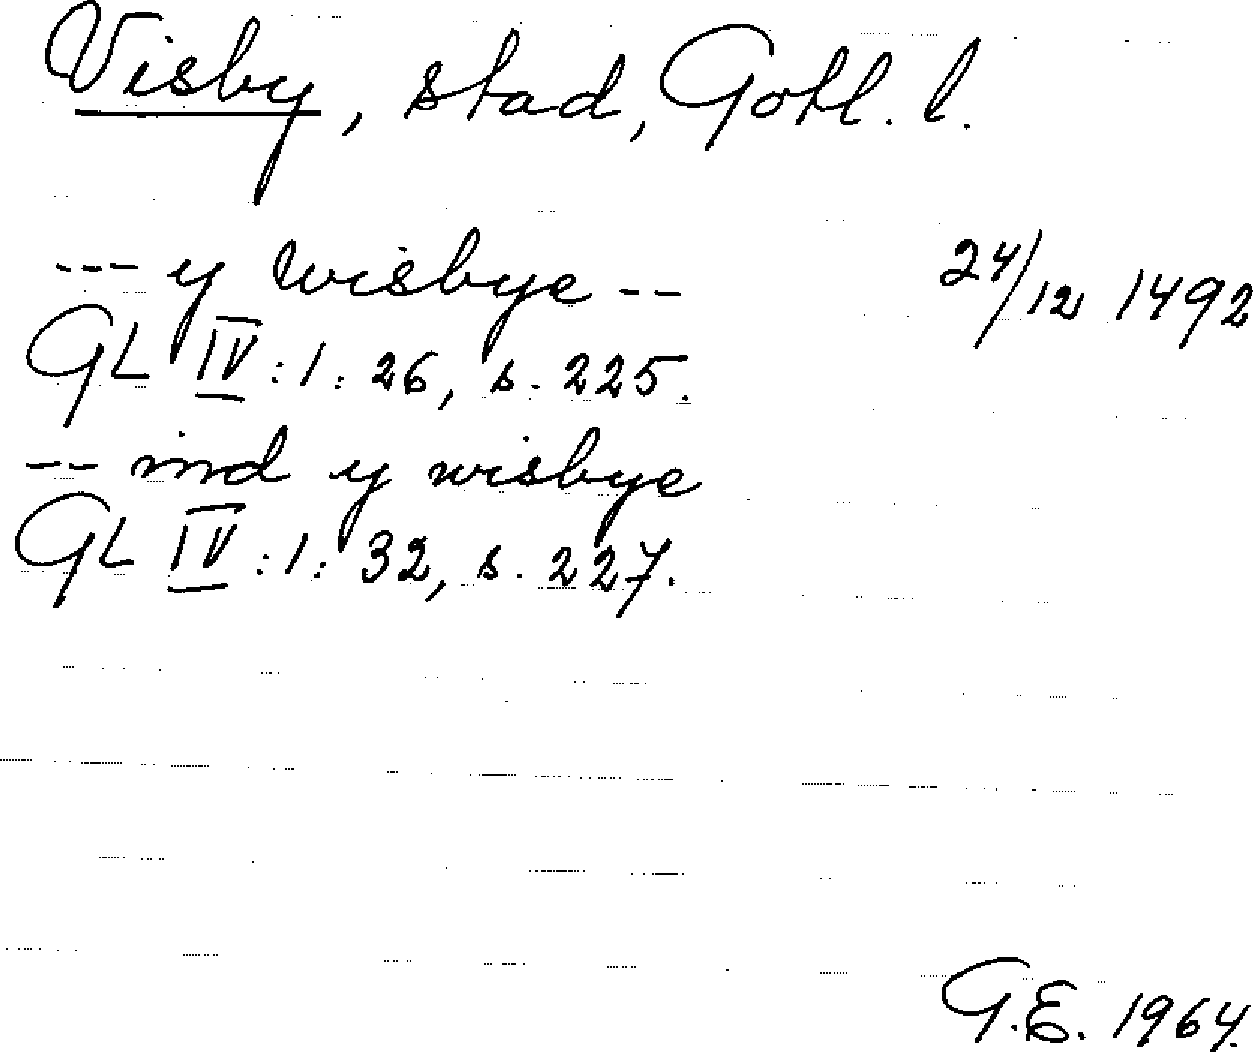 Visby, stad, Gotl. l.
--- y wisbye -- 24/12 1492
GL IV:1:26, s. 225.
-- ind y wisbye
GL IV:1:32, s. 227.
G.E. 1964.